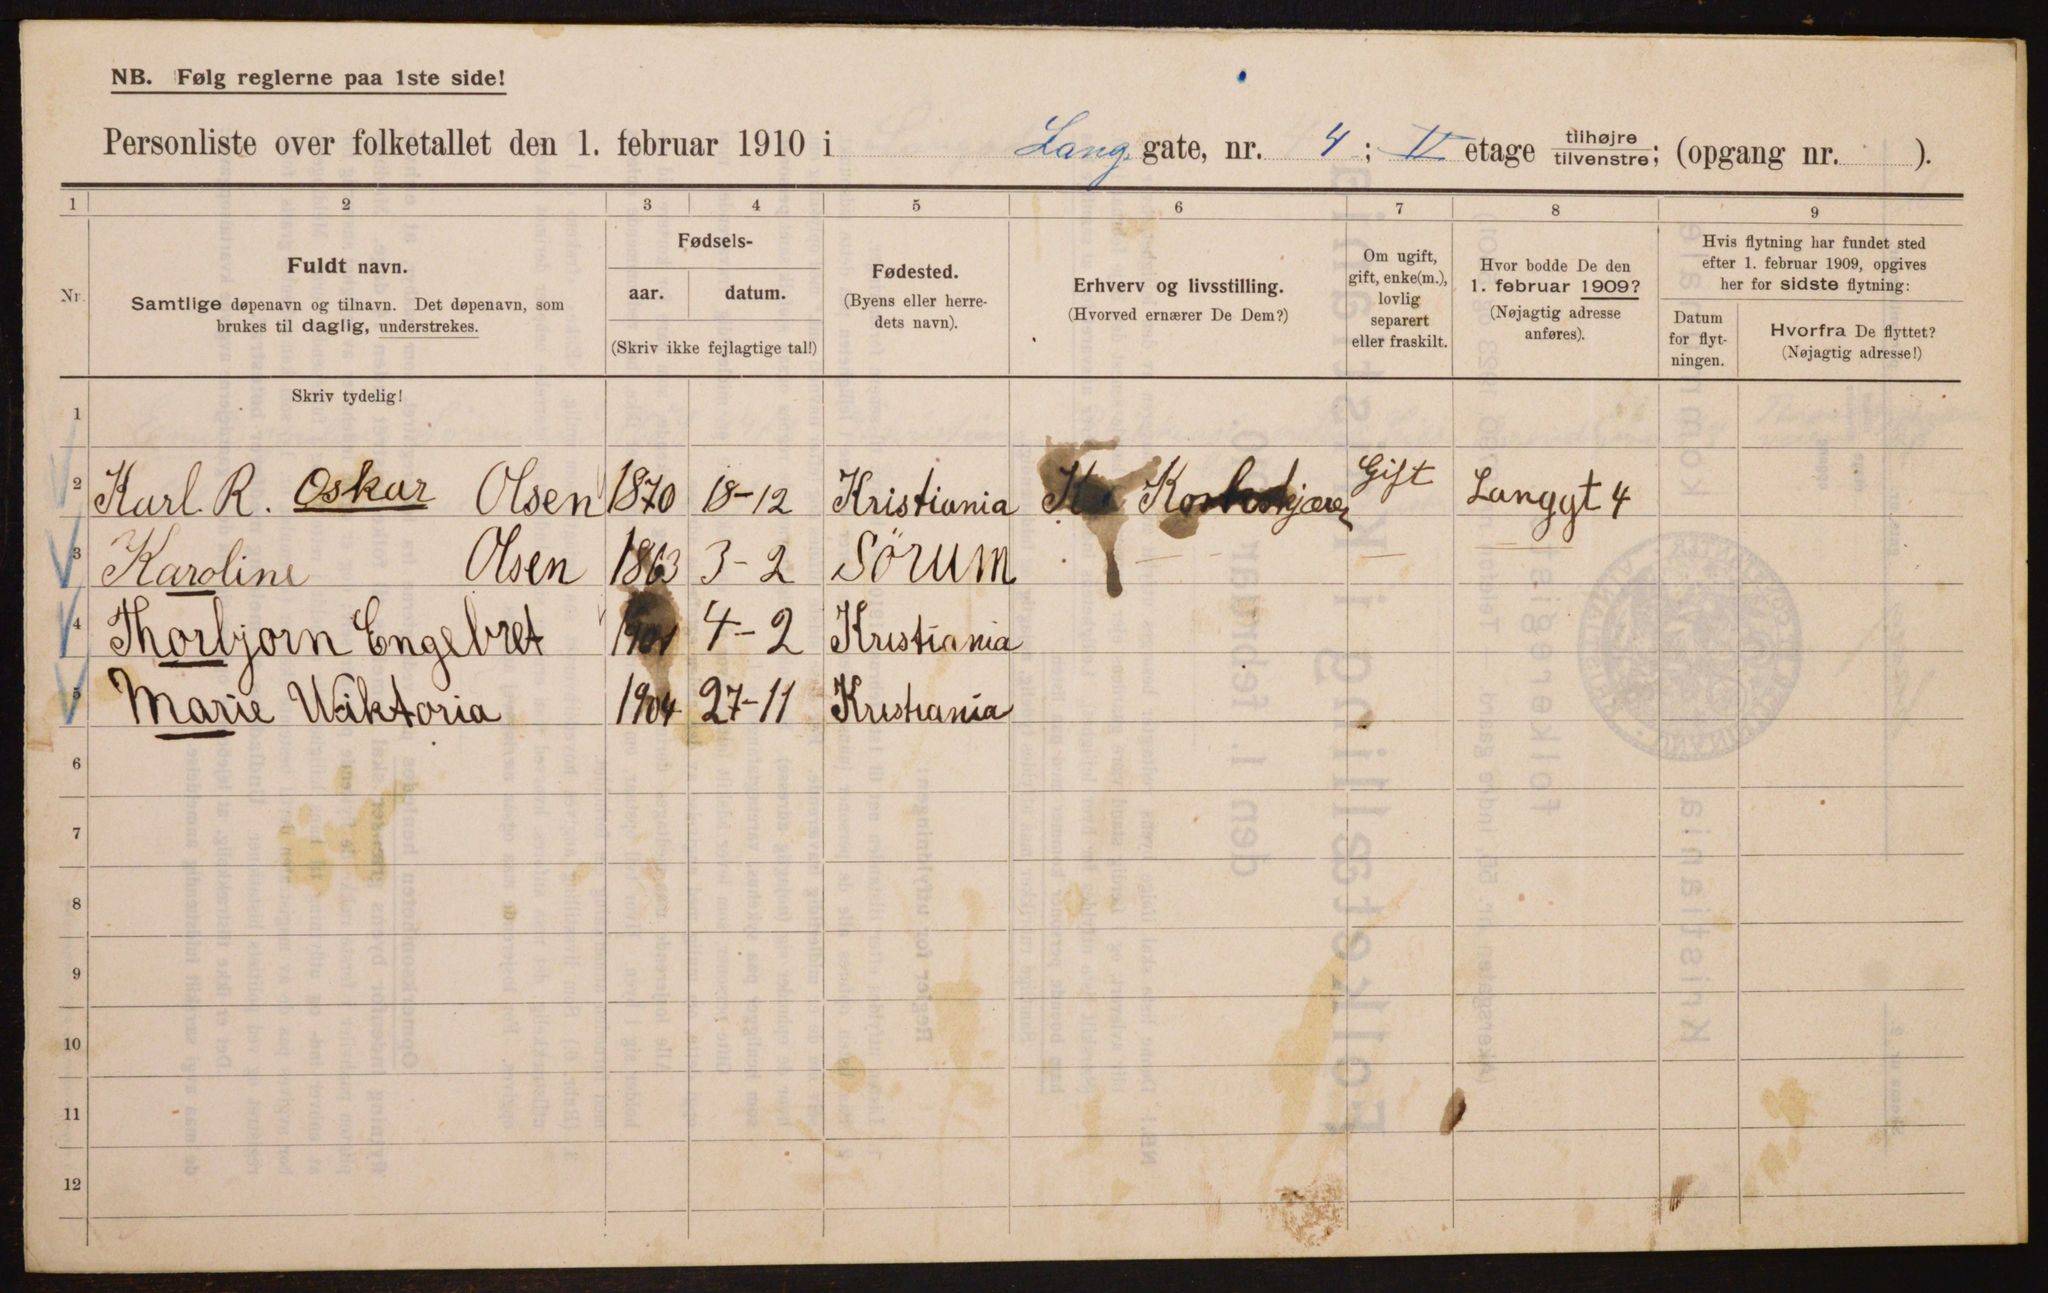 NB. Følg reglerne paa 1ste side!
Personliste over folketallet den 1. februar 1910 i Lang. gate, nr. 4; V etage tilhøjre/tilvenstre; (opgang nr. ).
1 2 3 4 5 6 7 8 9
Nr.
Fuldt navn.
Samtlige døpenavn og tilnavn. Det døpenavn, som
brukes til daglig, understrekes.
Fødsels-
aar. datum.
(Skriv ikke fejlagtige tal!)
Fødested.
(Byens eller herre-
dets navn).
Erhverv og livsstilling.
(Hvorved ernærer De Dem?)
Om ugift,
gift, enke(m.),
lovlig
separert
eller fraskilt.
Hvor bodde De den
1. februar 1909?
(Nøjagtig adresse
anføres).
Hvis flytning har fundet sted
efter 1. februar 1909, opgives
her for sidste flytning:
Datum
for flyt-
ningen.
Hvorfra De flyttet?
(Nøjagtig adresse!)
Skriv tydelig!
1
2 Karl. R. Oskar Olsen 1870 18-12 Kristiania Gift Langgt 4
3 Karoline Olsen 1863 3-2 Sörum
4 Thorbjorn Engebret 1901 4-2 Kristiania
5 Marie Wiktoria 1904 27-11 Kristiania
6
7
8
9
10
11
12